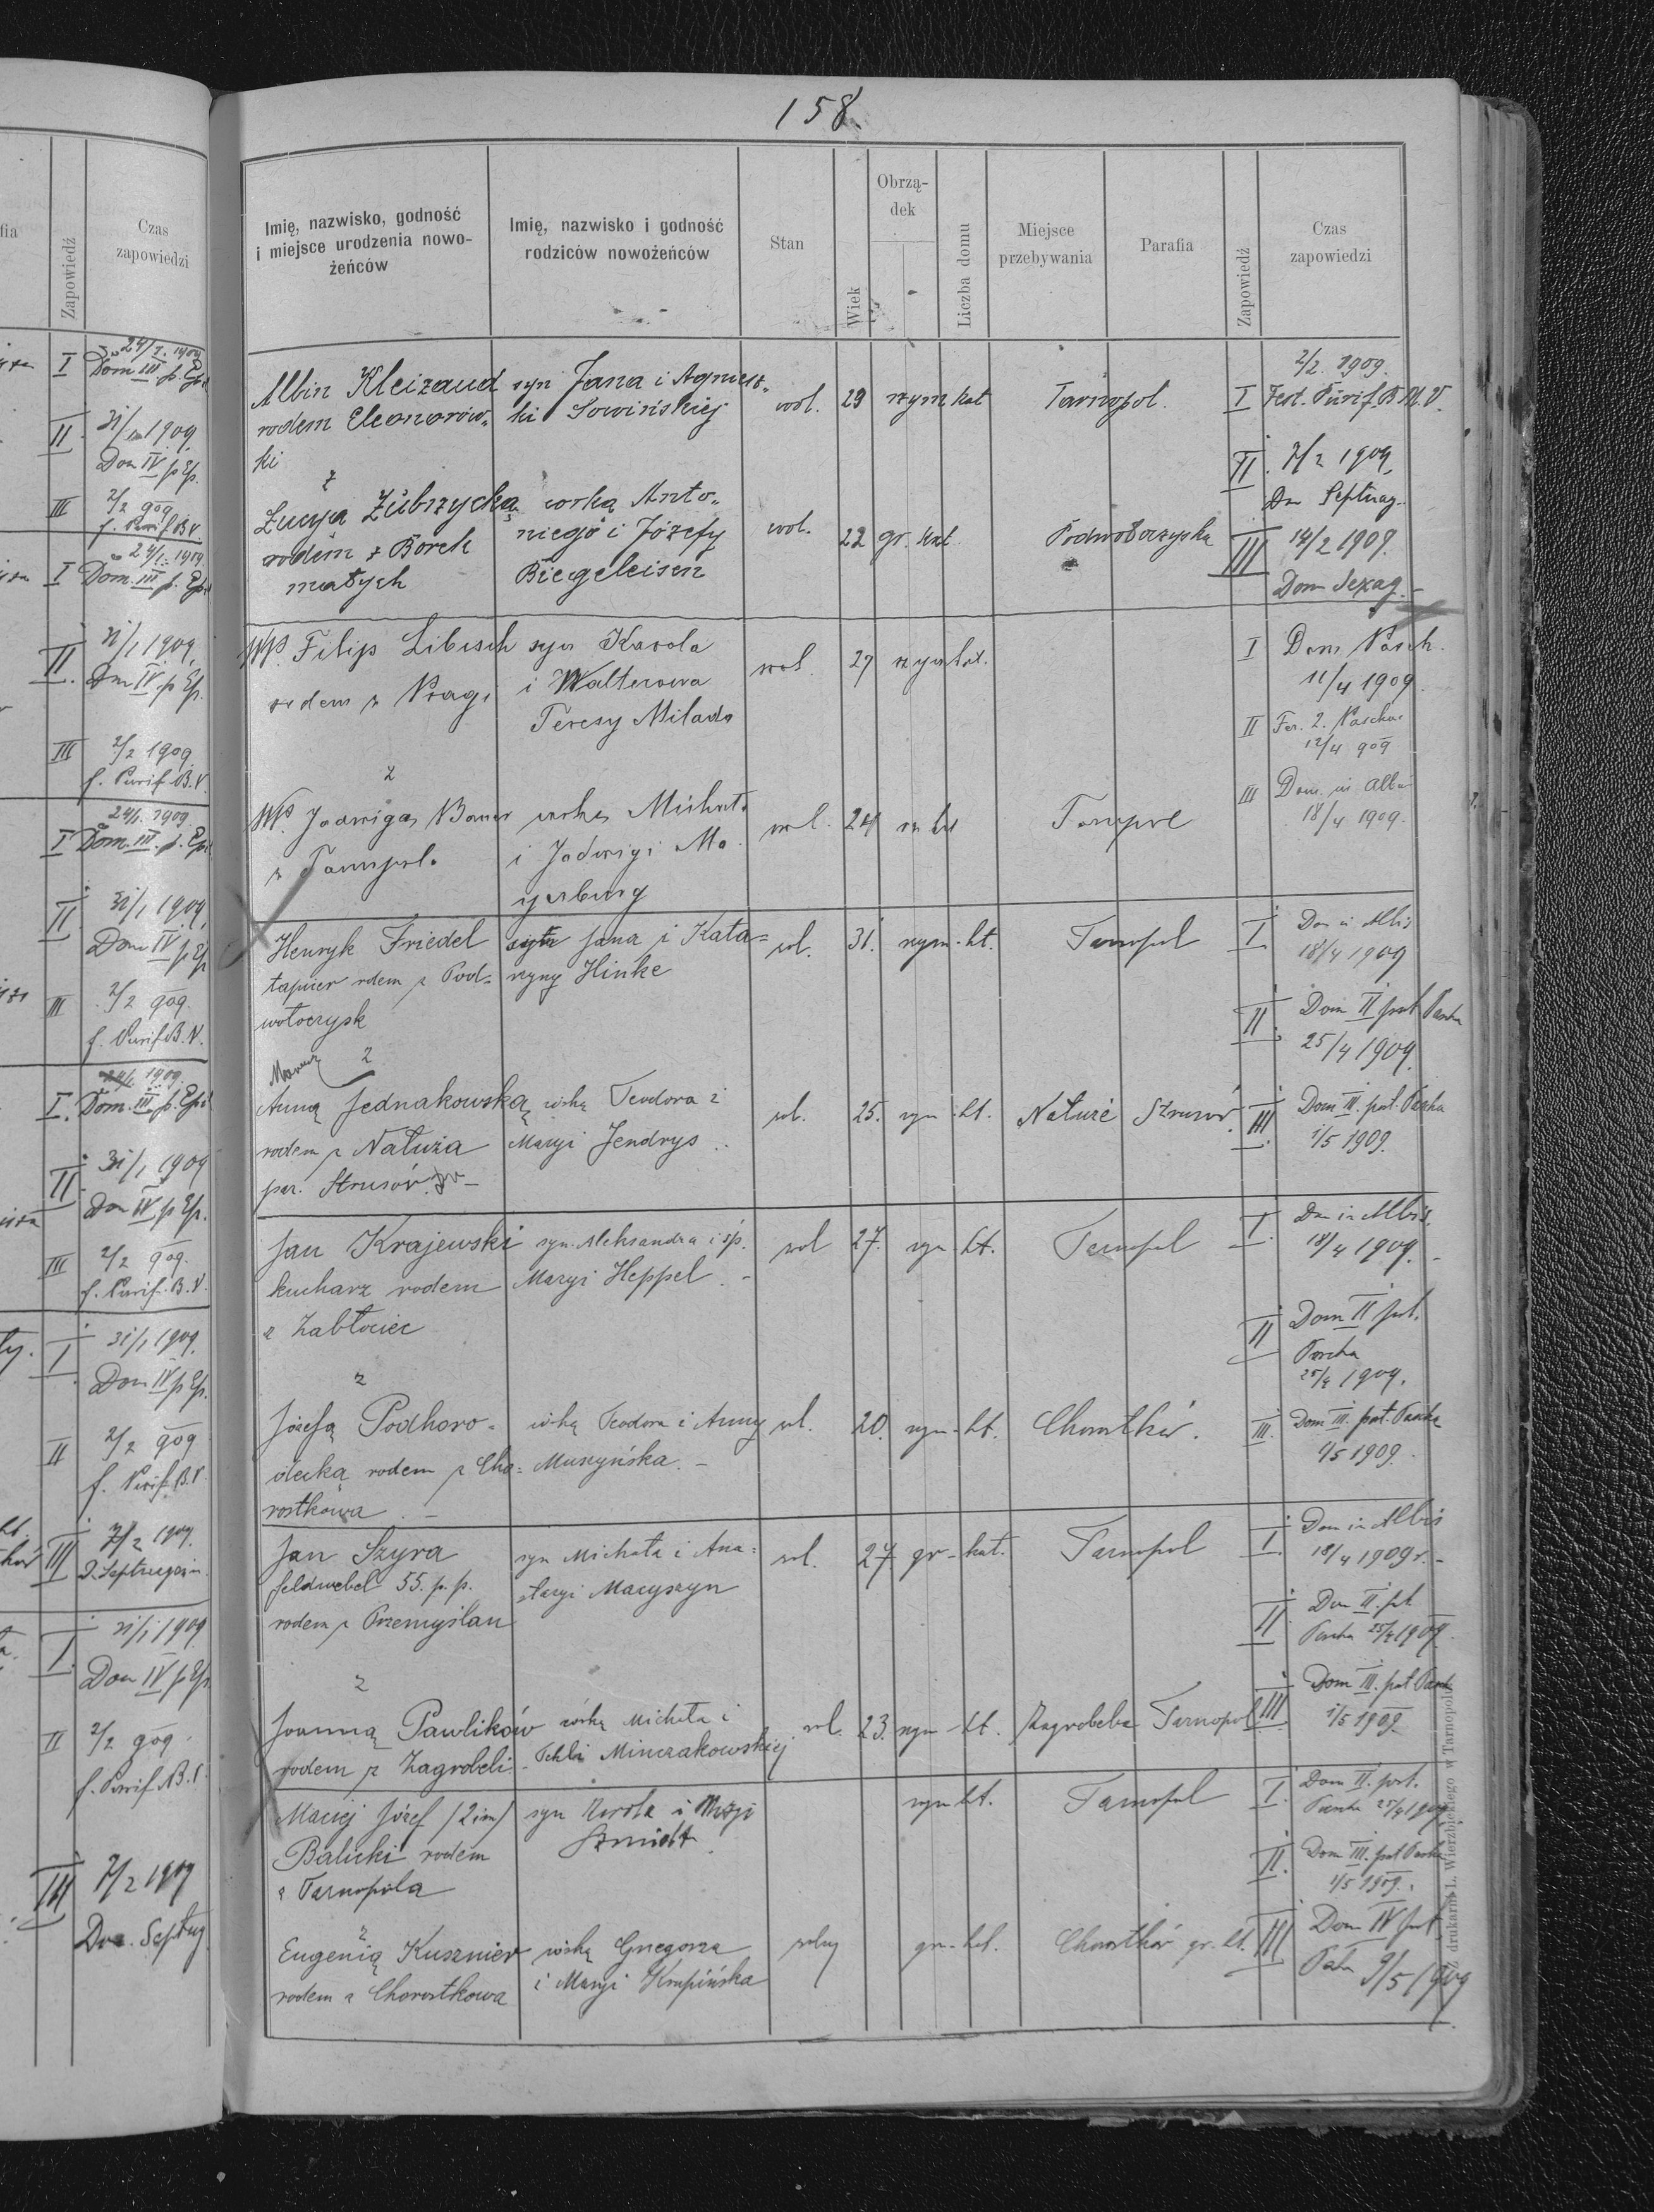 158.
Imię, nazwisko, godność i miejsce urodzenia nowo-żeńców
Imię, nazwisko i godność rodziców nowożeńców
Stan
Wiek
Obrzą-dek
Liczba domu
Miejsce przebywania
Parafia
Zapowiedź
Czas zapowiedzi
fia
Zapowiedź
Czas zapowiedzi
I 24/1. 1909
Dom III p. Epi
II 31/1 1909.
Dom IV p Ep.
III 2/2 909
f. Purif B.V.
I 24/1. 1909.
Dom. III p. Epi
II. 31/1 1909,
Dom IV. p Ep.
III 2/2 1909
f. Purif B.V.
I 24/1. 1909.
Dom. III p. Epi
II. 31/1 1909,
Dom IV p Ep
III 2/2 909.
f. Purif B.V.
I. 24/1 1909.
Dom. III p. Epi
II. 31/1 1909
Dom IV p Ep.
III 2/2 909.
f. Purif. B.V.
I. 31/1 1909.
Dom IV p Ep.
II 2/2 909
f. Purif B.V.
III 7/2 1909.
D. Septuagesim.
I. 31/1 1909
Dom IV p Ep
II 2/2 909.
f. Purif B.V.
III 7/2 1909
Dom. Septuag
Albin Kleizaud syn Jana i Agniesz- wol. 29 rzym kat Tarnopol. I 2/2. 1909.
rodem Eleonorów- ki Sowińskiej Fest. Purif. B.M.V.
ki
z
II. 7/2 1909,
Dom Septuag.
Łucya Zubrzycką córką Anto- wol. 22 gr. kat. Podwołoczyska III 14/2 1909.
rodem z Borek niego i Józefy Dom Sexag.-
małych Biegeleisen
WP. Filip Libisch syn Karola wol 27 rzym kat. I Dom Pasch.
rodem z Pragi i Walterowa 11/4 1909.
Teresy Milada II Fer. 2. Paschae
12/4 909
z
III Dom. in Albis
18/4 1909.
WP. Jadwigą Bauer córką Michała wol. 24 rz kat Tarnopol
z Tarnopola i Jadwigi Ma
yerburg
Henryk Friedel syn Jana i Kata= wol. 31. rzym-kt. Tarnopol I. Dom in Albis
tapicer rodem z Pod- rzyny Hinke 18/4 1909
wołoczysk
II. Dom II post Pascha
25/4 1909.
z
Anną Jednakowską córką Teodora i wol. 25. rzym-kt. Nałuże Strusów. III. Dom III. post. Pascha
rodem z Nałuża Maryi Jendrys 1/5 1909.
par. Strusów
Jan Krajewski syn Aleksandra i śp. wol 27. rzym-kt. Tarnopol I. Dom in Albis.
kucharz rodem Maryi Heppel.- 18/4 1909.-
z Zabłociec
II Dom II post.
Pascha
25/4 1909.
z
Józefą Podhoro- córką Teodora i Anny wol. 20. rzym-kt. Chorostków. III. Dom III. post. Pascha
decką rodem z Cho= Muszyńska.- 1/5 1909.
rostkowa.-
Jan Szyra syn Michała i Ana= wol. 27 gr-kat. Tarnopol I. Dom in Albis
feldwebel 55. p.p. stazyi Macyszyn 18/4 1909r.-
rodem z Przemyślan
II. Dom II. post
Pascha 25/4 1909.
z
Joanną Pawlików córką Michała i wol. 23. rzym-kt. Zagrobela Tarnopol III. Dom III. post Pascha
rodem z Zagrobeli- Tekli Minczakowskiej 1/5 1909
Maciej Józef (2im) syn Karola i Maryi rzym-kt. Tarnopol I. Dom II. post.
Balicki rodem Szmidt. Pascha 25/4 1909
z Tarnopola
II. Dom III. post Pascha
1/5 1909.
z
Eugenią Kusznier córką Grzegorza wolny gr-kat. Chorostków gr. kt. III Dom IV post
rodem z Chorostkowa i Maryi Krupińska Pascha 9/5 1909
Z drukarni L. Wierzbickiego w Tarnopolu.